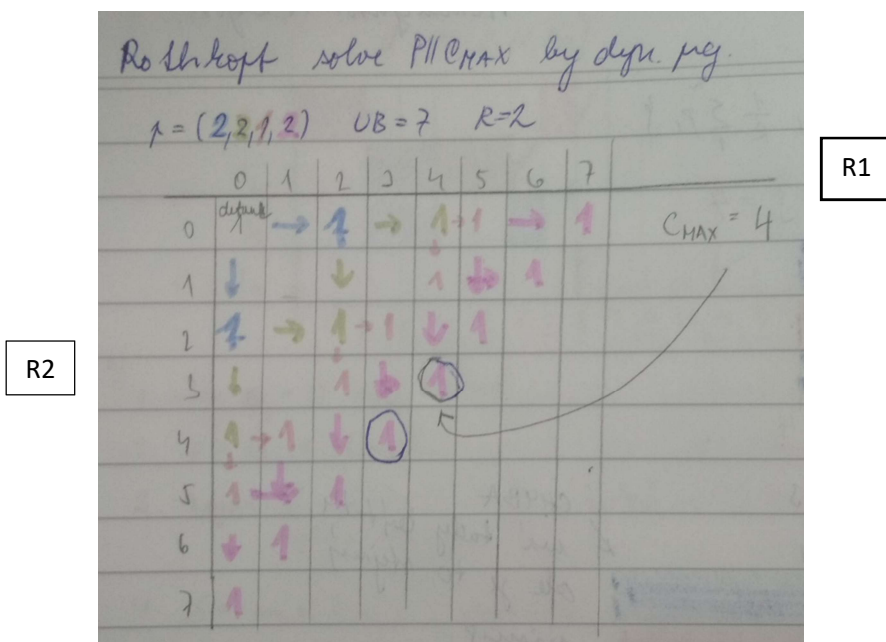 Rothkopf solve P||CMAX by dyn. prg.
p = (2,2,1,2) UB = 7 R=2
R1
0 1 2 3 4 5 6 7
0 default 1 → 1 → 1 → 1 → 1 CMAX = 4
1 ↓ ↓ 1 ↓ 1
2 1 → 1 → 1 ↓ 1
R2
3 ↓ 1 ↓ 1
4 1 → 1 ↓ 1
5 1 → ↓ 1
6 ↓ 1
7 1